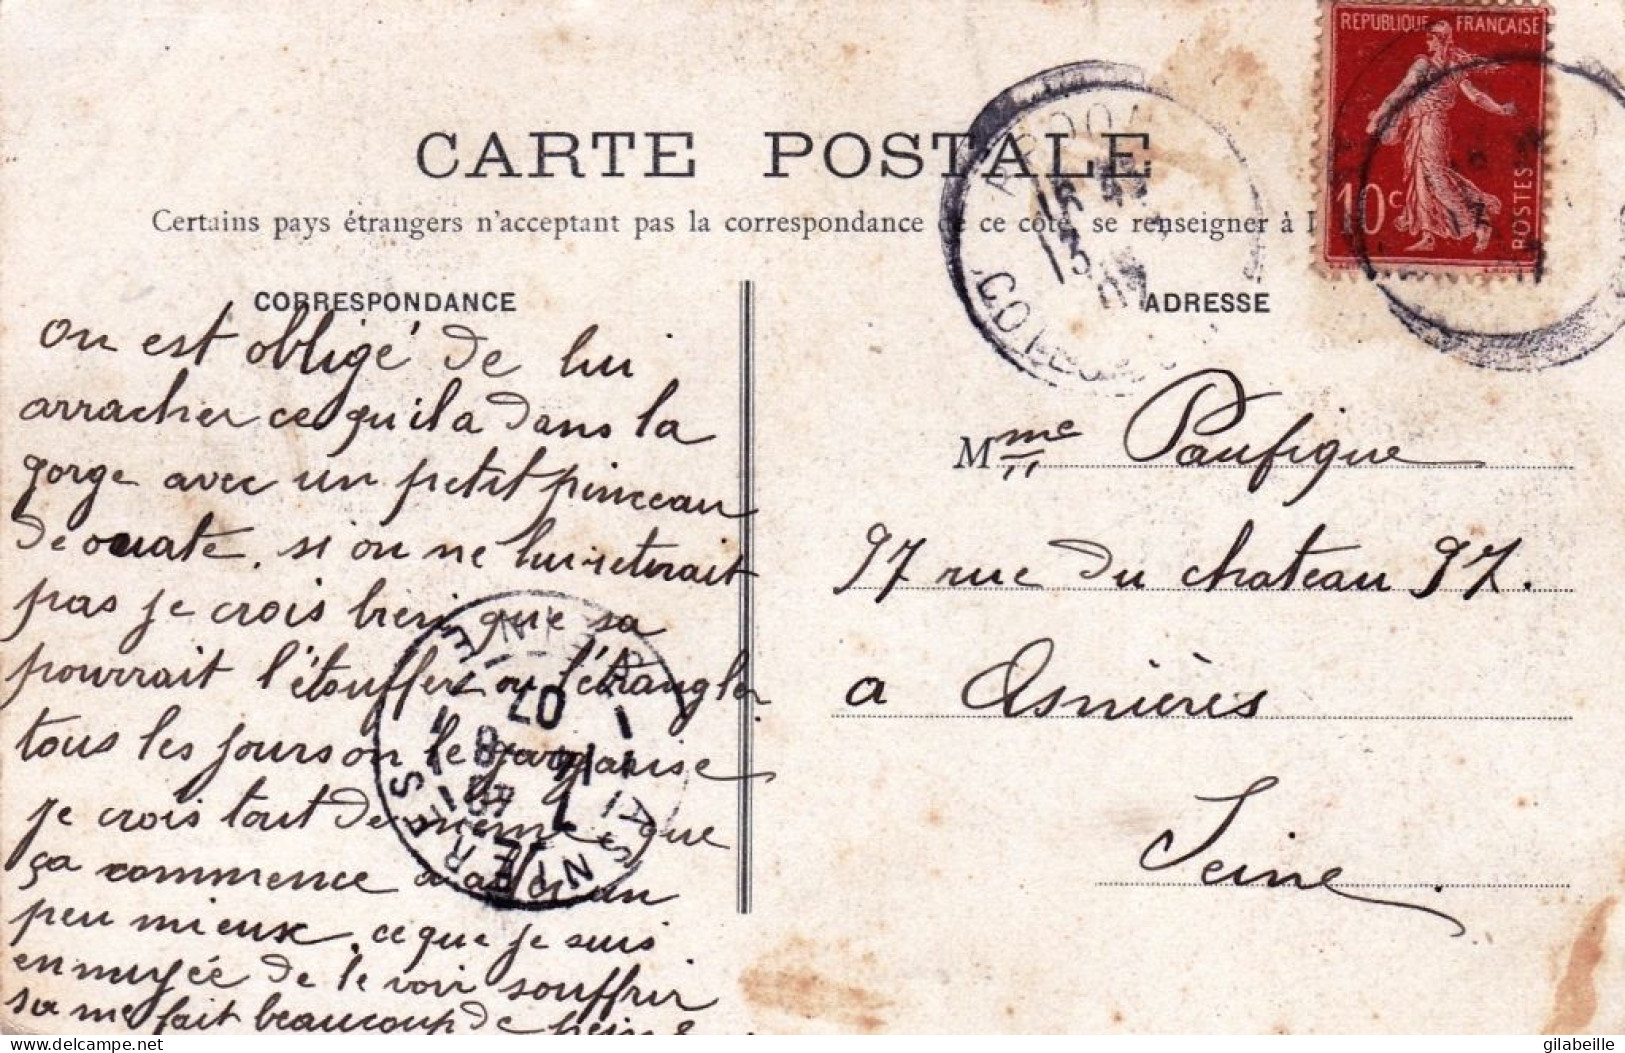 RÉPUBLIQUE FRANÇAISE
10c
POSTES
CARTE POSTALE
Certains pays étrangers n'acceptant pas la correspondance de ce côté, se renseigner à
CORRESPONDANCE
on est obligé de lui
arracher ce qu'il a dans la
gorge avec un petit pinceau
de ouate. si on ne lui retirait
pas je crois bien que sa
pourrait l'étouffer ou l'étrangler
tous les jours on le gargarise
je crois tout de même que
ça commence a aller un
peu mieux, ce que je suis
ennuyée de le voir souffrir
sa me fait beaucoup de peine
ADRESSE
Mme Paufique
97 rue du chateau 97.
a Asnières
Seine
ASNIERES
07
delcampe.net
gilabeille